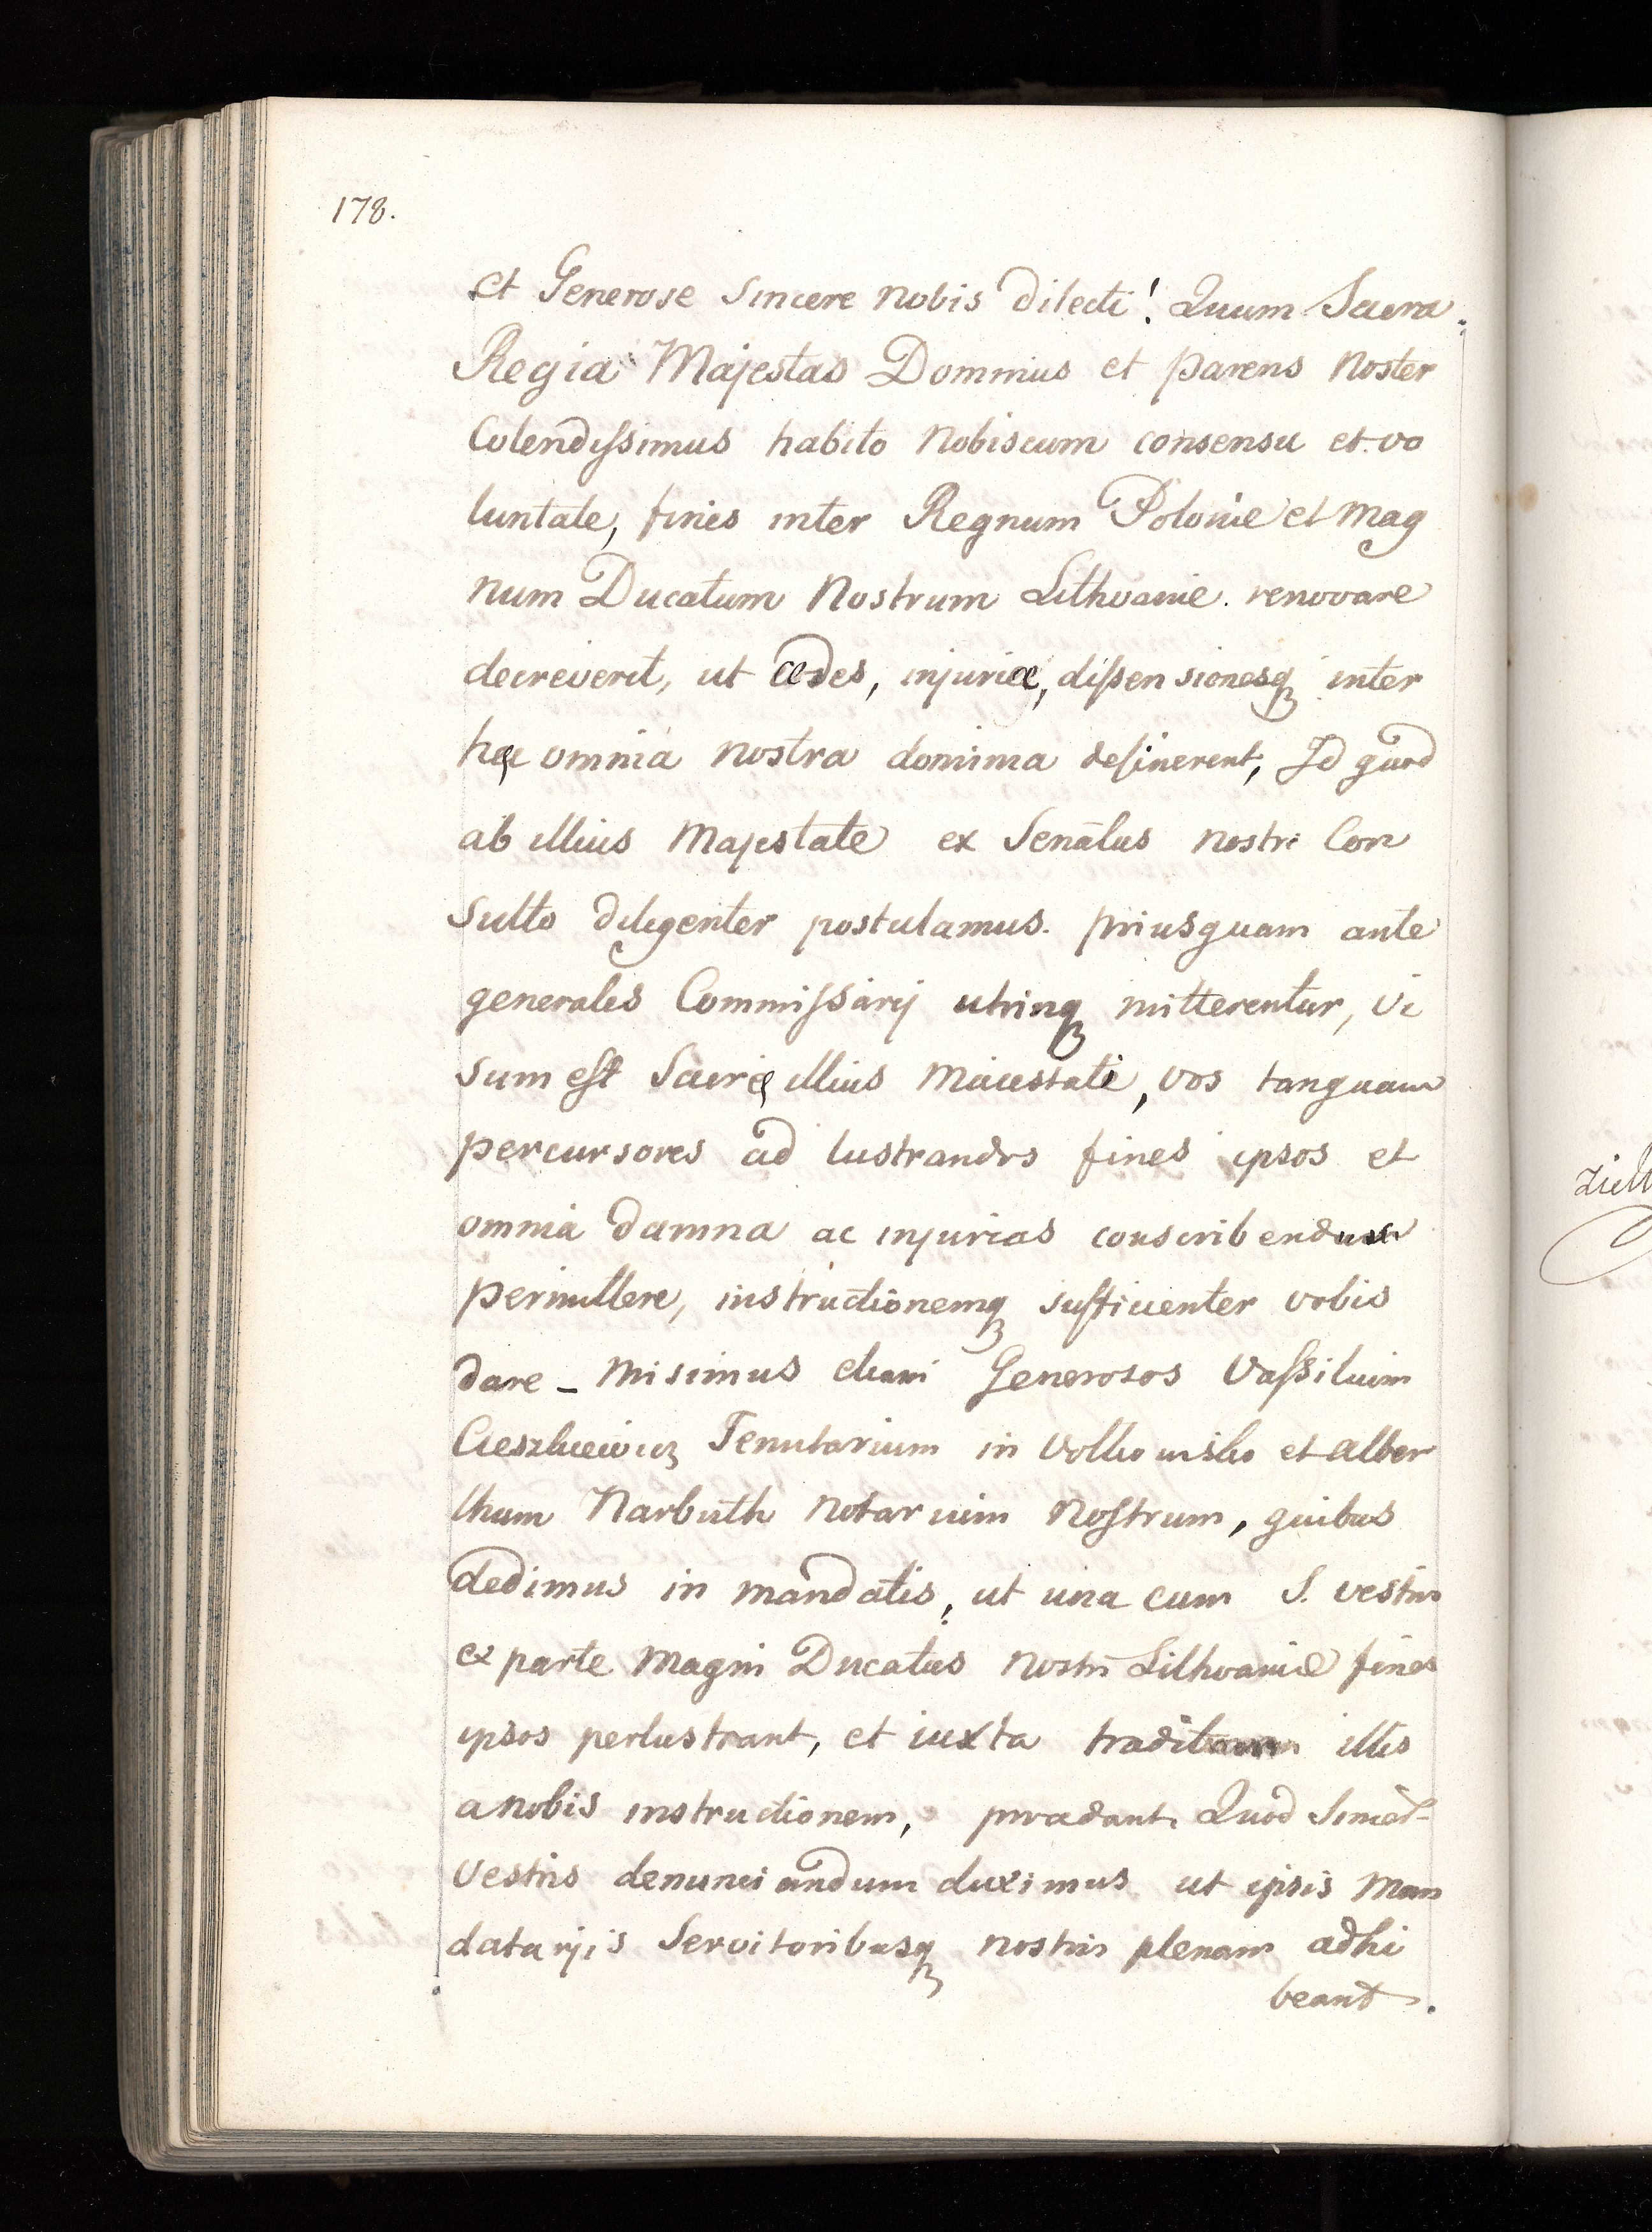 178.
et Generose Sincere nobis dilecti! Quum Sacra
Regia Majestas Dominus et parens noster
Colendissimus habito nobiscum consensu et vo
luntate, fines inter Regnum Polonie et Mag
num Ducatum Nostrum Lithvanie. renovare
decreverit, ut cædes, injuriæ, dissensionesq inter
hęc omnia nostra dominia desinerent, Id quod
ab illius Majestate ex Senatus nostri Con
Sulto diligenter postulamus. priusquam ante
generales Commissarij utrinq mitterentur, Vi
sum est Sacrę illius Maiestati, vos tanquam
percursores ad lustrandos fines ipsos et
omnia damna ac injurias conscribendum
permittere, instructionemq sufficienter vobis
dare _ Misimus etiam Generosos Vassilium
Tenutarium in et alber
thum Narbuth Notarium Nostrum, quibus
dedimus in mandatis, ut una cum S. vestris
ex parte Magni Ducatus nostri Lithvanie fines
ipsos perlustrant, et iuxta illis
a nobis instructionem, Quod
Vestris denunciandum duximus ut ipsis Man
datarijis Servitoribusq nostris plenam adhi
beant.